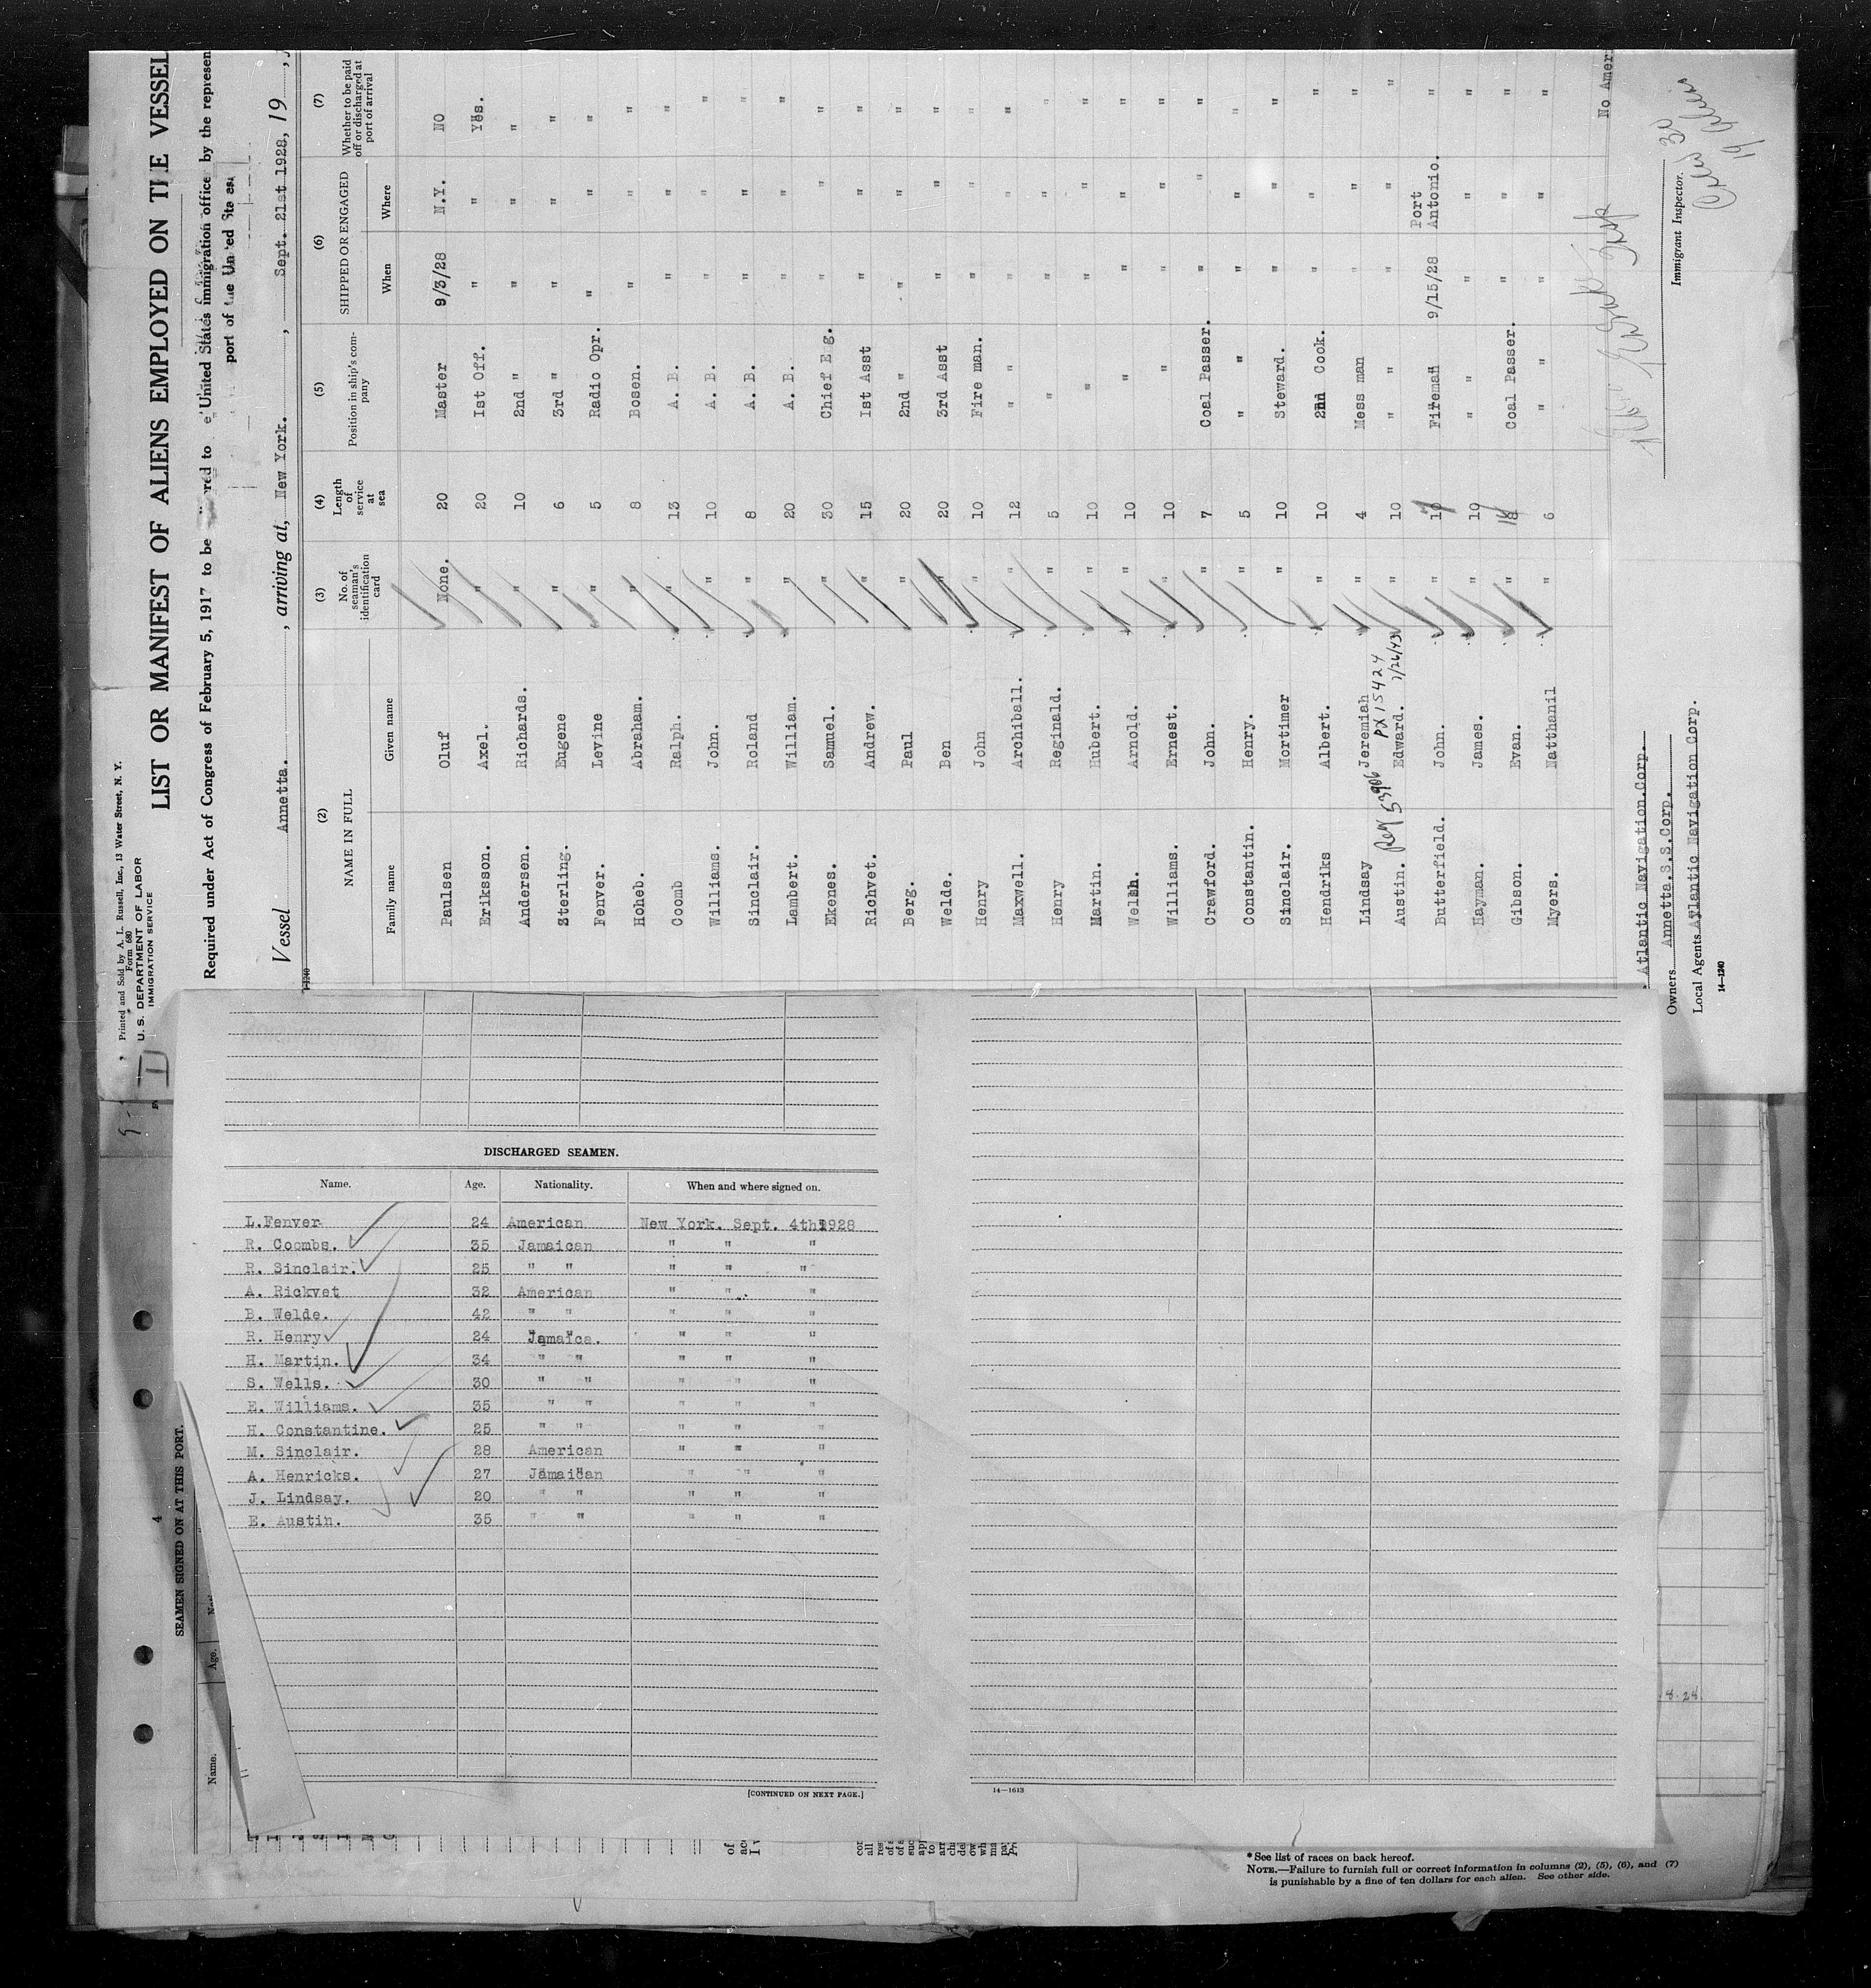 Printed and Sold by A. L. Russell, Inc., 13 Water Street, N. Y.
Form 680
U. S. DEPARTMENT OF LABOR
IMMIGRATION SERVICE
D
LIST OR MANIFEST OF ALIENS EMPLOYED ON THE VESSEL
Required under Act of Congress of February 5, 1917 to be United States immigration office by the represen
port of the United States
Vessel Annetta. , arriving at, New York. , Sept. 21st 1928, 19
(2) (3) (4) (5) (6) (7)
NAME IN FULL No. of seaman's identification card Length of service at sea Position in ship's company SHIPPED OR ENGAGED Whether to be paid off or discharged at port of arrival
Family name Given name When Where
Paulsen Oluf None. 20 Master 9/3/28 N.Y. NO
Eriksson. Axel. " 20 1st Off. " " Yes.
Andersen. Richards. " 10 2nd " " " "
Sterling. Eugene " 6 3rd " " " "
Fenver. Levine " 5 Radio Opr. " " "
Hoheb. Abraham. " 8 Bosen. " " "
Coomb Ralph. " 13 A. B. " " "
Williams. John. " 10 A. B. " " "
Sinclair. Roland " 8 A. B. " " "
Lambert. William. " 20 A. B. " " "
Ekenes. Samuel. " 30 Chief E g. " " "
Richvet. Andrew. " 15 1st Asst " " "
Berg. Paul " 20 2nd " " " "
Welde. Ben " 20 3rd Asst " " "
Henry John " 10 Fire man. " " "
Maxwell. Archiball. " 12 " " " "
Henry Reginald. " 5 " " " "
Martin. Hubert. " 10 " " " "
Welsh. Arnold. " 10 " " " "
Williams. Ernest. " 10 " " " "
Crawford. John. " 7 Coal Passer. " " "
Constantin. Henry. " 5 " " " " "
Sinclair. Mortimer " 10 Steward. " " "
Hendriks Albert. " 10 2nd Cook. " " "
Lindsay Jeremiah " 4 Mess man " " "
Reg 53906 PX 15424 7/26/43
Austin. Edward. " 10 " " " " "
Butterfield. John. " 7 Fireman 9/15/28 Port Antonio. "
Hayman. James. " 10 " " " " "
Gibson. Evan. " 18 Coal Passer. " " "
Myers. Natthanil " 6 " " " " "
No Amer
Atlantic Navigation.Corp.
Owners Annetta.S.S.Corp.
Local Agents Atlantic Navigation Corp.
14-1240
Immigrant Inspector.
Crew 30
19 Aliens
DISCHARGED SEAMEN.
Name. Age. Nationality. When and where signed on.
L.Fenver 24 American New York. Sept. 4th 1928
R. Coombs. 35 Jamaican " " "
R. Sinclair. 25 " " " " "
A. Rickvet 32 American " " "
B. Welde. 42 " " " " "
R. Henry 24 Jamaica. " " "
H. Martin. 34 " " " " "
S. Wells. 30 " " " " "
E. Williams. 35 " " " " "
H. Constantine. 25 " " " " "
M. Sinclair. 28 American " " "
A. Henricks. 27 Jamaican " " "
J. Lindsay. 20 " " " " "
E. Austin. 35 " " " " "
[CONTINUED ON NEXT PAGE.]
14—1613
4
SEAMEN SIGNED ON AT THIS PORT.
Name. Age.
*See list of races on back hereof.
NOTE.—Failure to furnish full or correct information in columns (2), (5), (6), and (7)
is punishable by a fine of ten dollars for each alien. See other side.